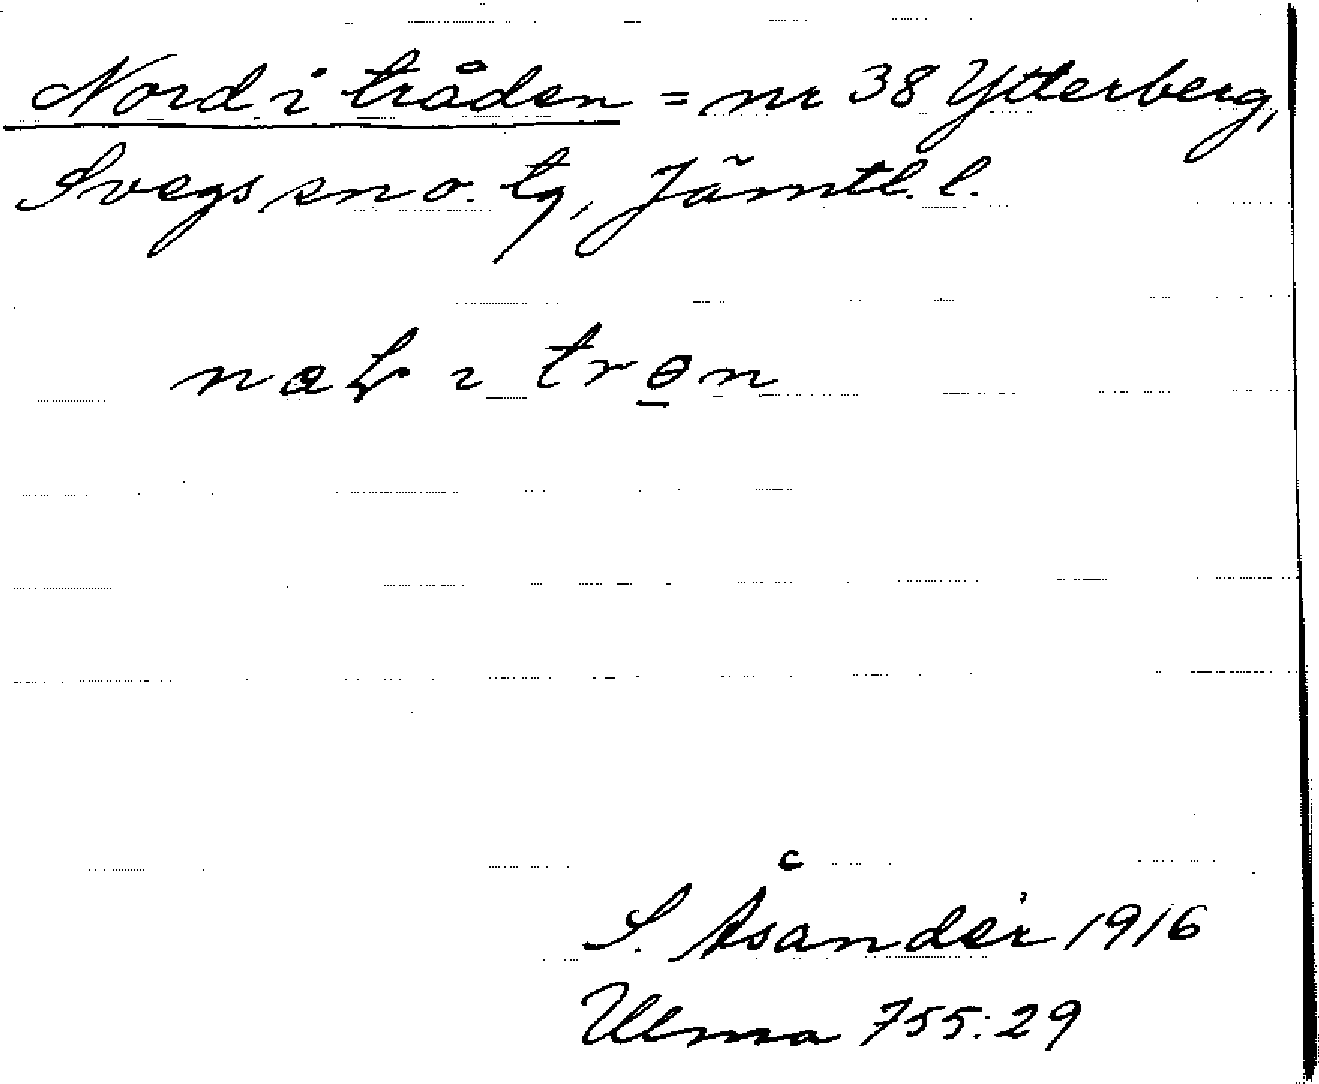 Nord i tråden = nr 38 Ytterberg,
Svegs sn o. tg, Jämtl. l.
i trɵn
S. Åsander 1916
Ulma 755:29